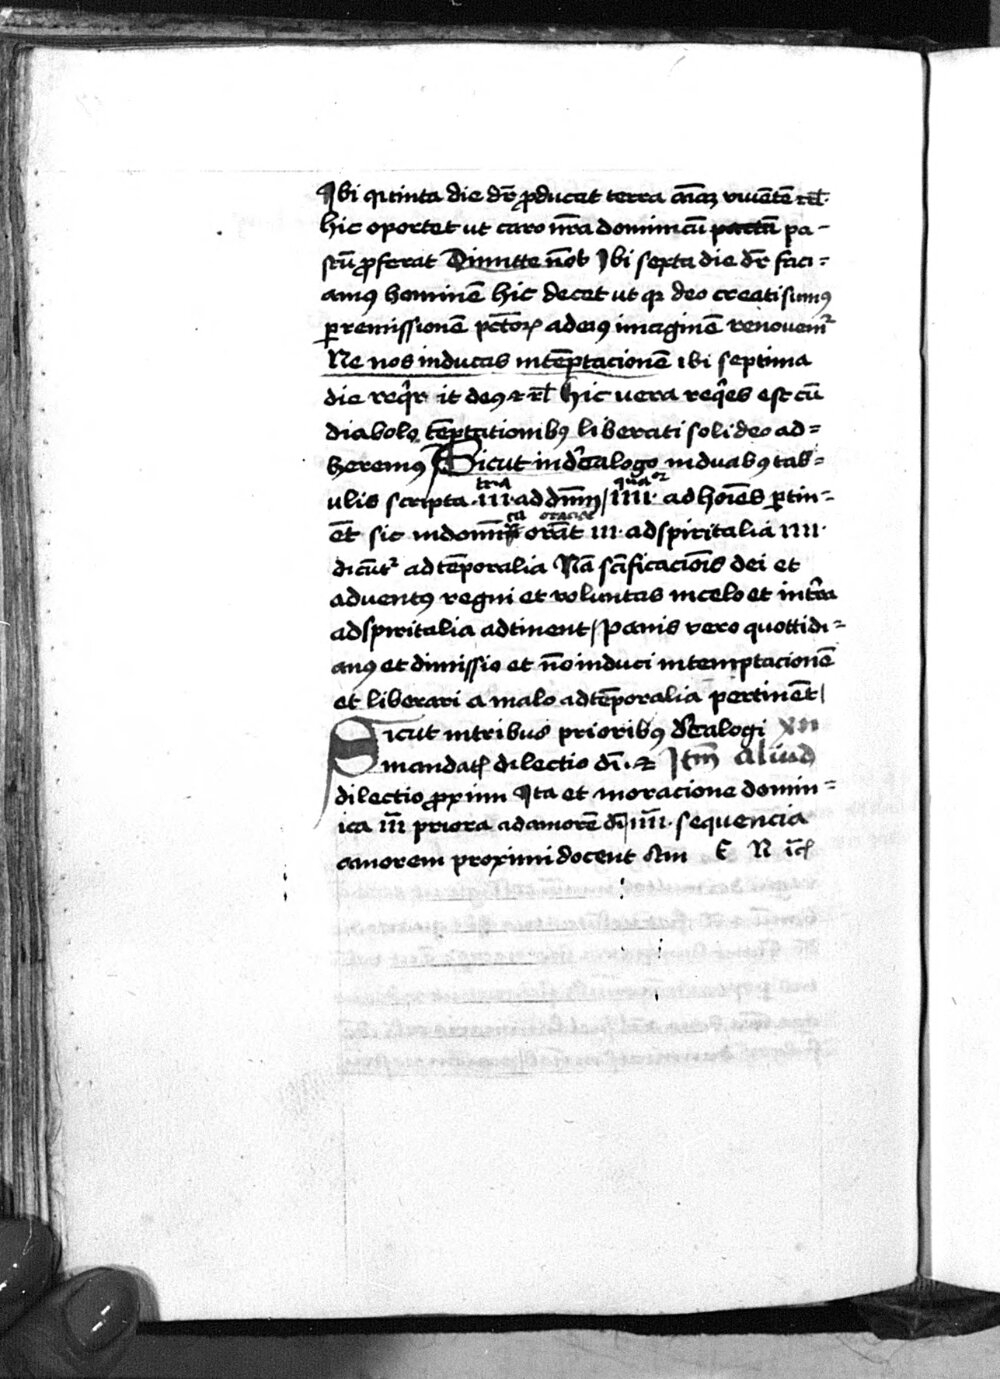 Ibi quinta die dr̄ ꝓducat terra aīaꝫ viuētē ⁊cͣ.
hic oportet ut caro nr̄a dominicū pactū pa-
ctū ꝓferat Dimitte nob̄ Ibi sexta die dr̄ faci=
amꝰ hominē hic decet ut qꝛ deo creati sumꝰ
ꝑ remissionē pctōꝝ ad eiꝰ imaginē renouemꝛ
Ne nos inducas in tēptacionē ibi septima
die requieuit deꝰ ⁊ ⁊cͣ hic vera reqͥes est cū
diabolo tēptationibꝰ liberati soli deo ad=
heremꝰ Sicut in decalogo in duabꝰ tab=
ulis scripta tria .iii. ad dnm̄ / quatuor .iiii. ad hoīes ꝑtin=
ēt sic in domī orāt iii. ad spiritalia iiii.
dicūtꝛ ad tēporalia Nā scīficaciōis dei et
aduentꝰ regni et voluntas in celo et in tr̄a
ad spiritalia adtinent / Panis vero quottidi=
anꝰ et dimissio et nō induci in temptacionē
et liberari a malo ad tēporalia pertinēt /
Sicut in tribus prioribꝰ decalogi
mandatꝭ dilectio dī. ⁊ Itm̄ Aliud
dilectio ꝓximi Ita et in oracione domin=
ica iii priora ad amorē dī / iiii. sequencia
amorem proximi docent Am E N ⁊cͣ